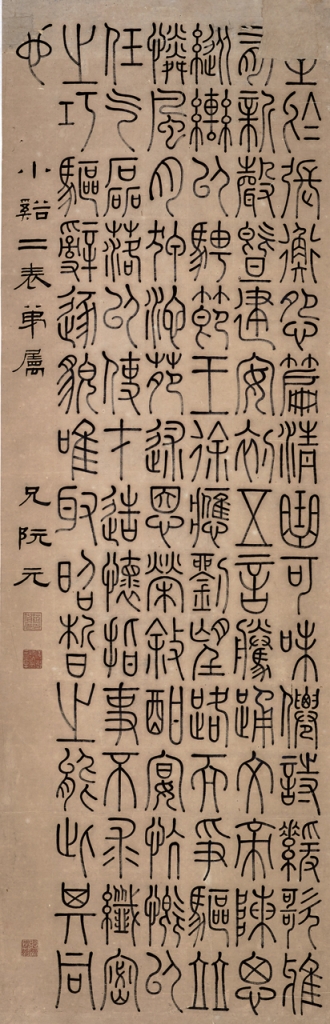 至於張衡怨篇清曲可味僊詩緩歌雅
有新聲暨建安初五言騰踊文帝陳思
縱轡以騁節王徐應劉望路而爭驅並
憐風月狎池苑述恩榮敘酣宴忼慨以
任气磊落以使才造懷指事不求纖密
之巧驅辭逐貌唯取昭晳之能此其同
也
小谿二表弟屬 兄阮元